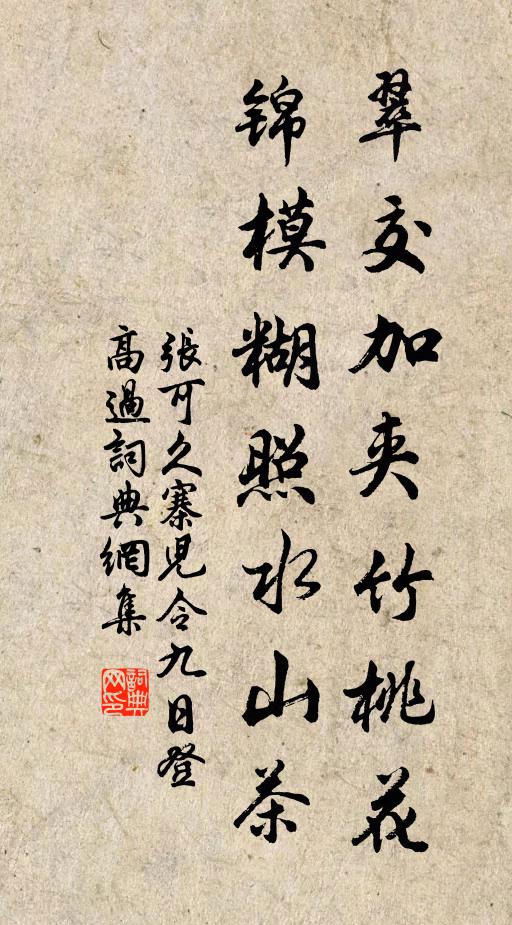 翠交加夹竹桃花
锦模糊照水山茶
張可久寨児令九日登
高過詞典網集
詞典网印